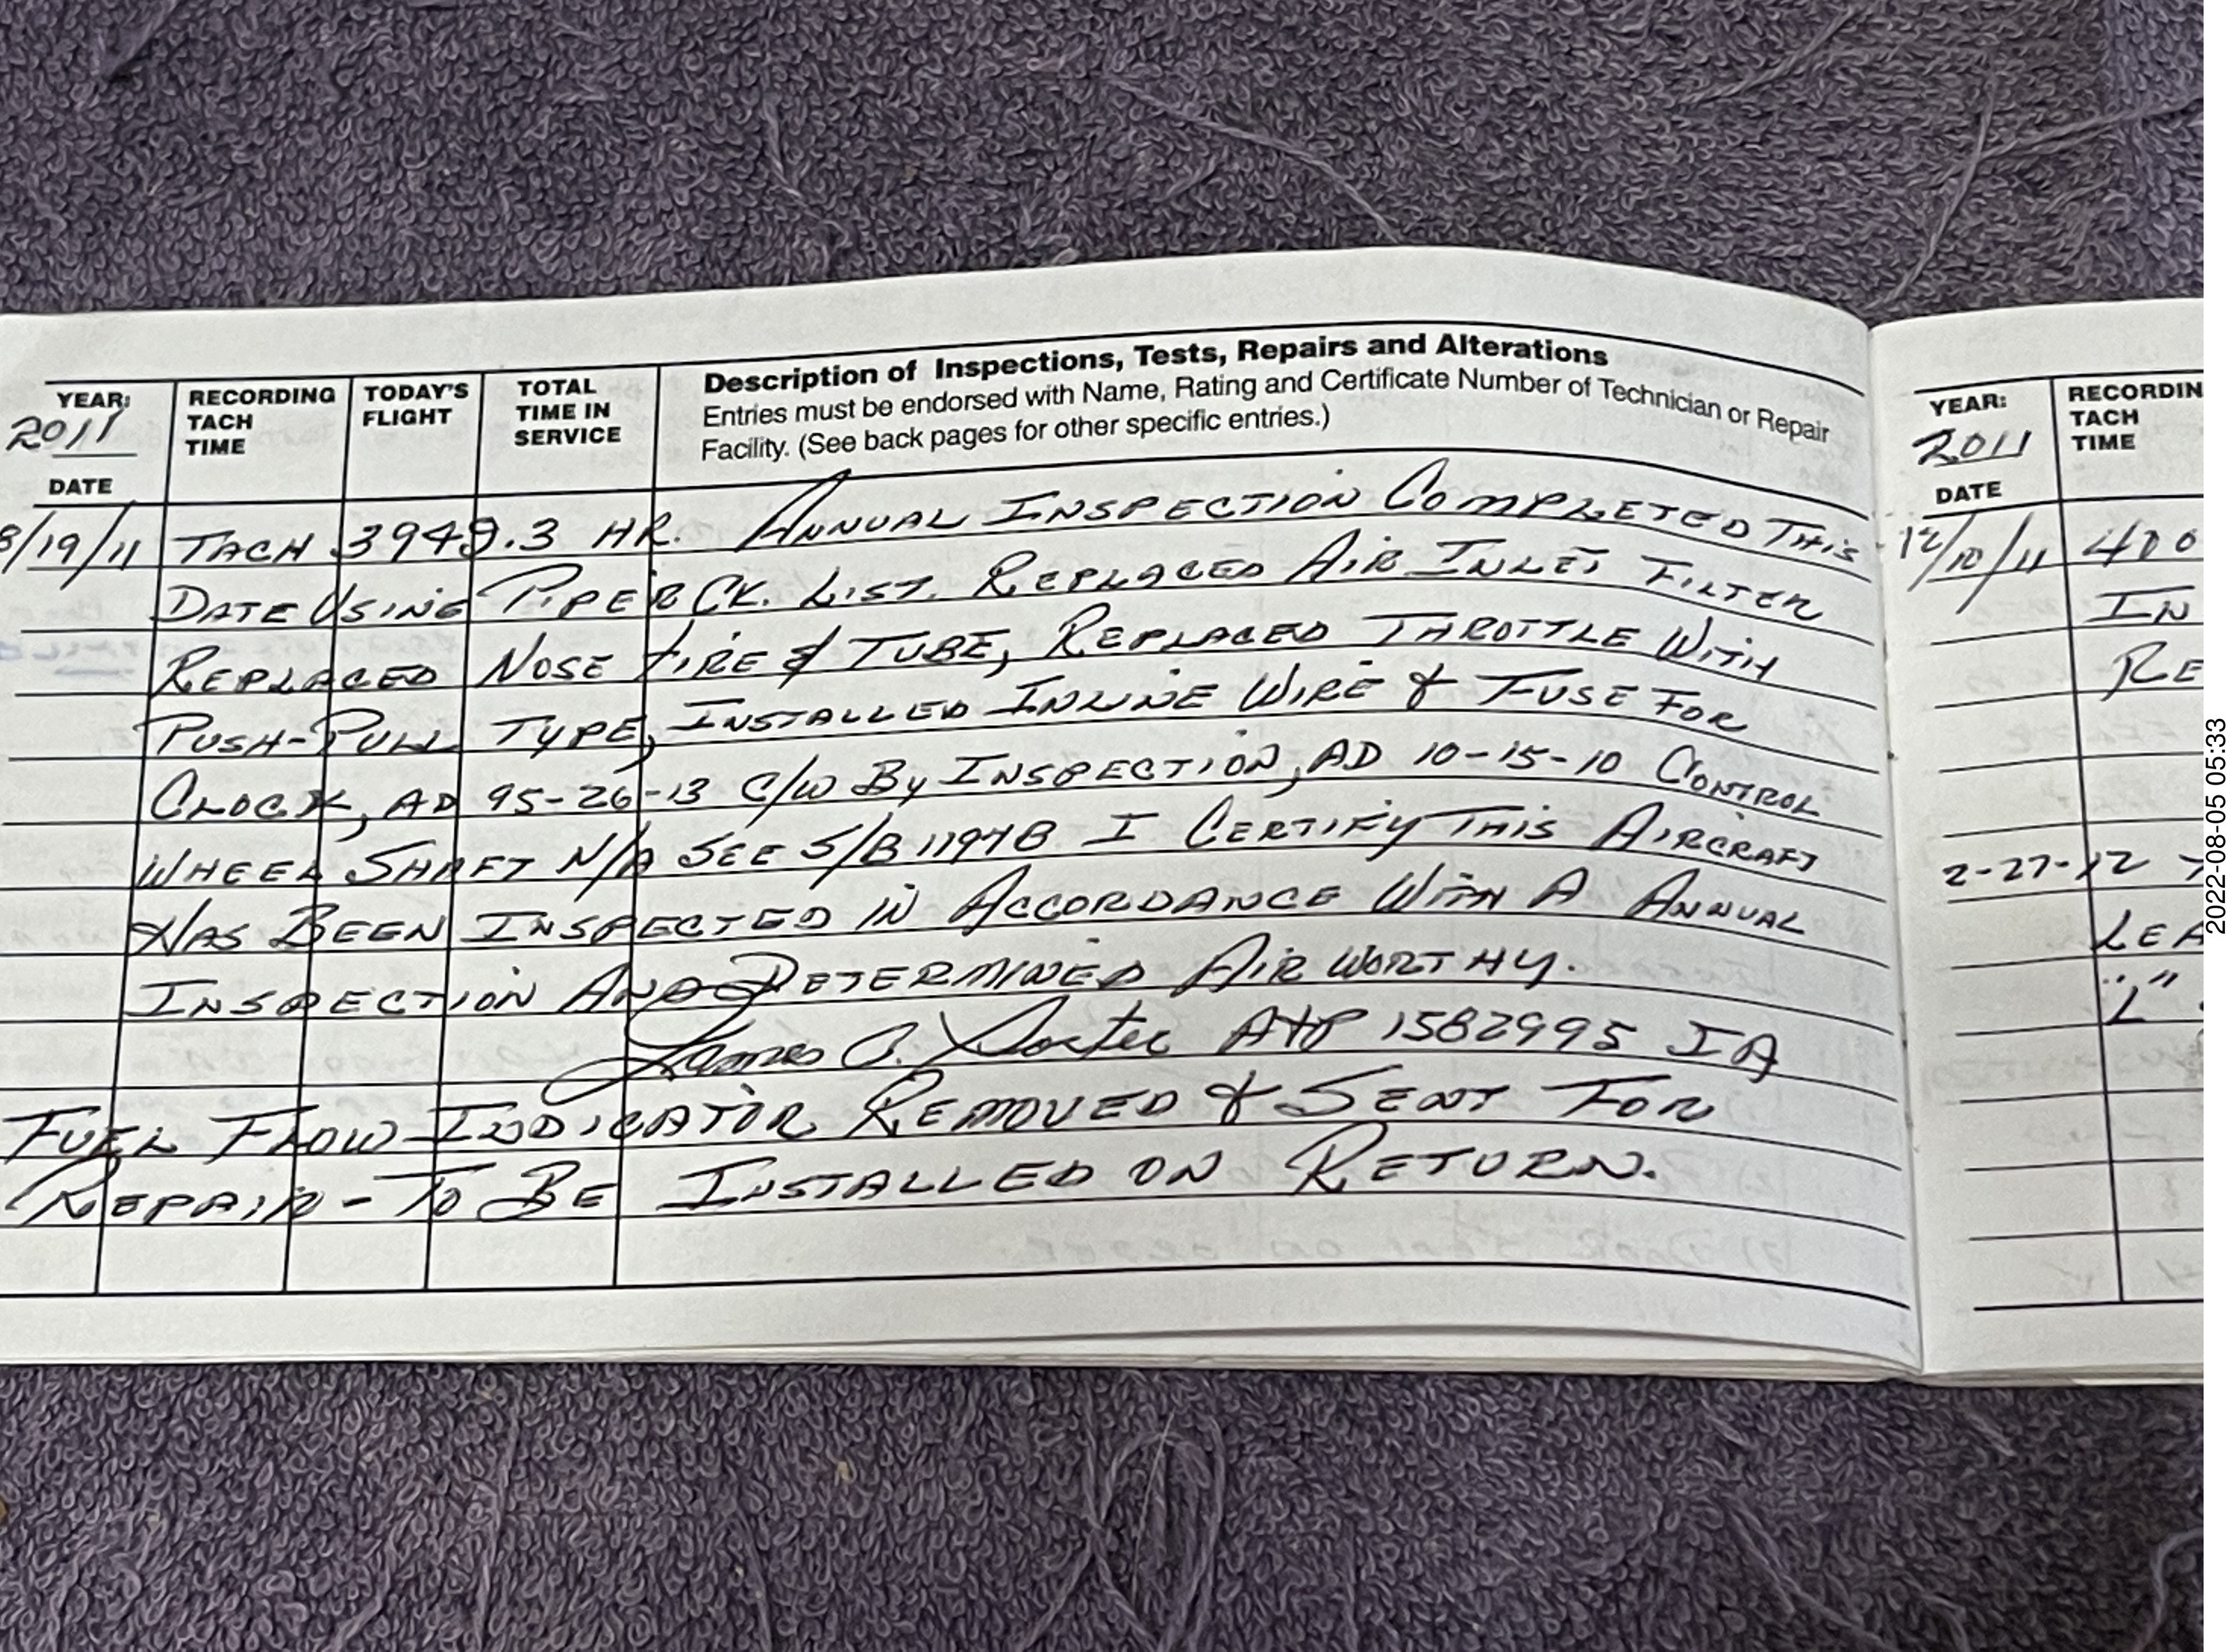 YEAR:
2011
DATE
RECORDING
TACH
TIME
TODAY'S
FLIGHT
TOTAL
TIME IN
SERVICE
Description of Inspections, Tests, Repairs and Alterations
Entries must be endorsed with Name, Rating and Certificate Number of Technician or Repair
Facility. (See back pages for other specific entries.)
8/19/11 TACH 3949.3 HR. ANNUAL INSPECTION COMPLETED THIS
DATE USING PIPER CK. LIST. REPLACED AIR INLET FILTER
REPLACED NOSE TIRE & TUBE, REPLACED THROTTLE WITH
PUSH-PULL TYPE, INSTALLED INLINE WIRE & FUSE FOR
CLOCK, AD 95-26-13 C/W BY INSPECTION, AD 10-15-10 CONTROL
WHEEL SHAFT N/A SEE S/B 1197B I CERTIFY THIS AIRCRAFT
HAS BEEN INSPECTED IN ACCORDANCE WITH A ANNUAL
INSPECTION AND DETERMINED AIRWORTHY.
James C. A&P 1582995 IA
FUEL FLOW INDICATOR REMOVED & SENT FOR
REPAIR - TO BE INSTALLED ON RETURN.
YEAR:
2011
DATE
RECORDIN
TACH
TIME
12/10/11 400
IN
RE
2-27-12
LEA
"L"
2022-08-05 05:33